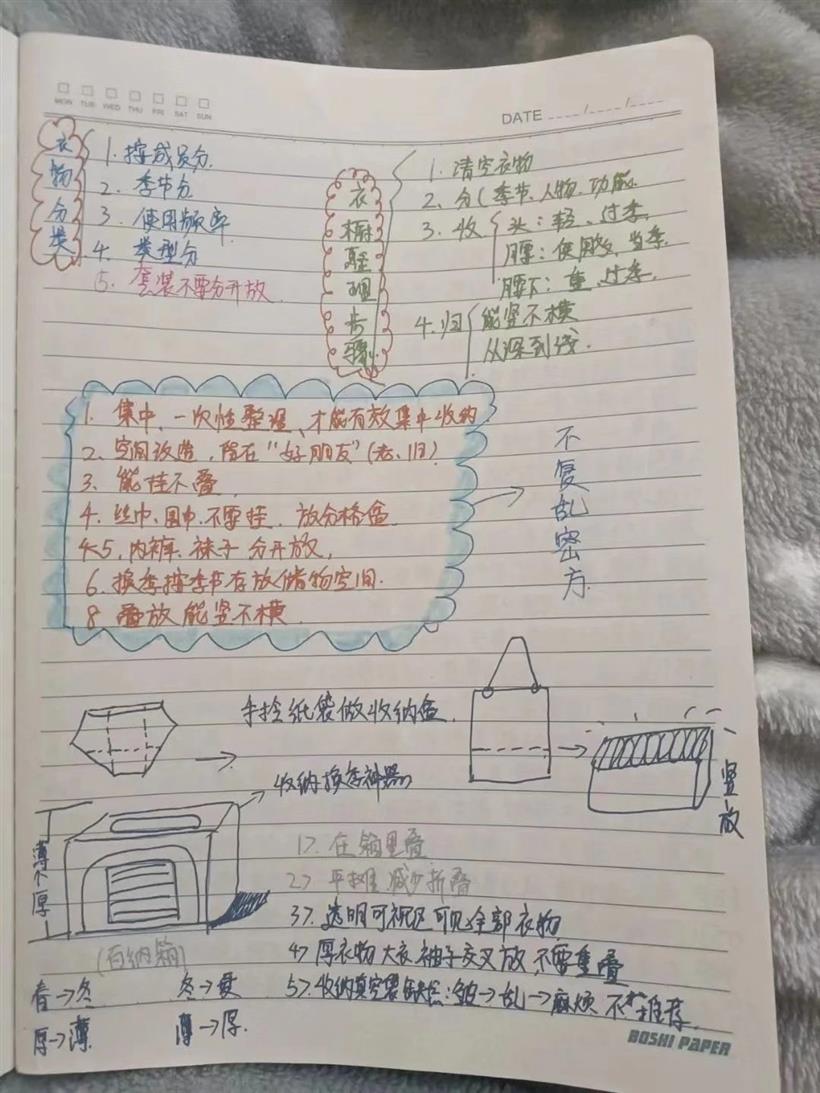 MON TUE WED THU FRI SAT SUN
DATE
衣物分类
1. 按成员分
2. 季节分
3. 使用频率
4. 类型分
5. 套装不要分开放
衣橱整理步骤
1. 清空衣物
2. 分(季节、人物、功能
3. 收
头:轻、过季
腰:使用多、当季
腰下:重、过季
4. 归
能竖不横
从深到浅
1. 集中、一次性整理、才能有效集中收纳
2. 空间改造,陪在“好朋友”(老、旧)
3. 能挂不叠
4. 丝巾、围巾、不要挂、放分格盒
5. 内裤、袜子 分开放,
6. 换季按季节存放储物空间.
8 叠放 能竖不横
不复乱密方
手拎纸袋做收纳盒
竖放
收纳换季神器
薄 厚
(百纳箱)
春→冬 冬→夏
厚→薄 薄→厚.
1>. 在箱里叠
2> 平摊 减少折叠
3>. 透明可视区可见全部衣物
4> 厚衣物 大衣 袖子交叉放 不要重叠
5>. 收纳真空袋缺点:皱→乱→麻烦 不推荐
BOSHI PAPER